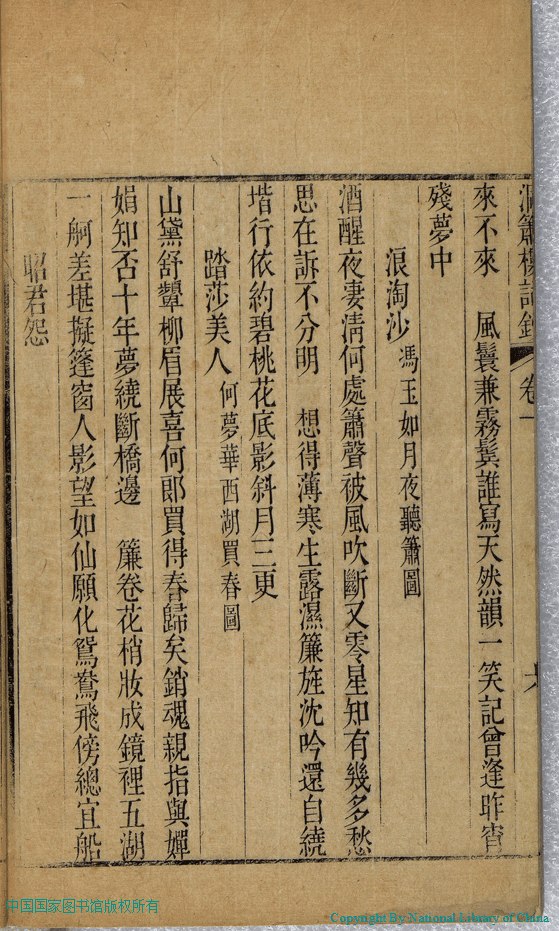 洞簫樓詩鈔 卷一
來不來　風鬟兼霧鬢誰寫天然韻一笑記曾逢昨宵
殘夢中
浪淘沙 馮玉如月夜聽簫圖
酒醒夜凄清何處簫聲被風吹斷又零星知有幾多愁
思在訴不分明　想得薄寒生露濕簾旌沈吟還自繞
堦行依約碧桃花底影斜月三更
踏莎美人 何夢華西湖買春圖
山黛舒顰柳眉展喜何郎買得春歸矣銷魂親指與嬋
娟知否十年夢繞斷橋邊　簾卷花梢妝成鏡裡五湖
一舸差堪擬篷窗人影望如仙願化鴛鴦飛傍總宜船
昭君怨
中国国家图书馆版权所有
Copyright By National Library of China